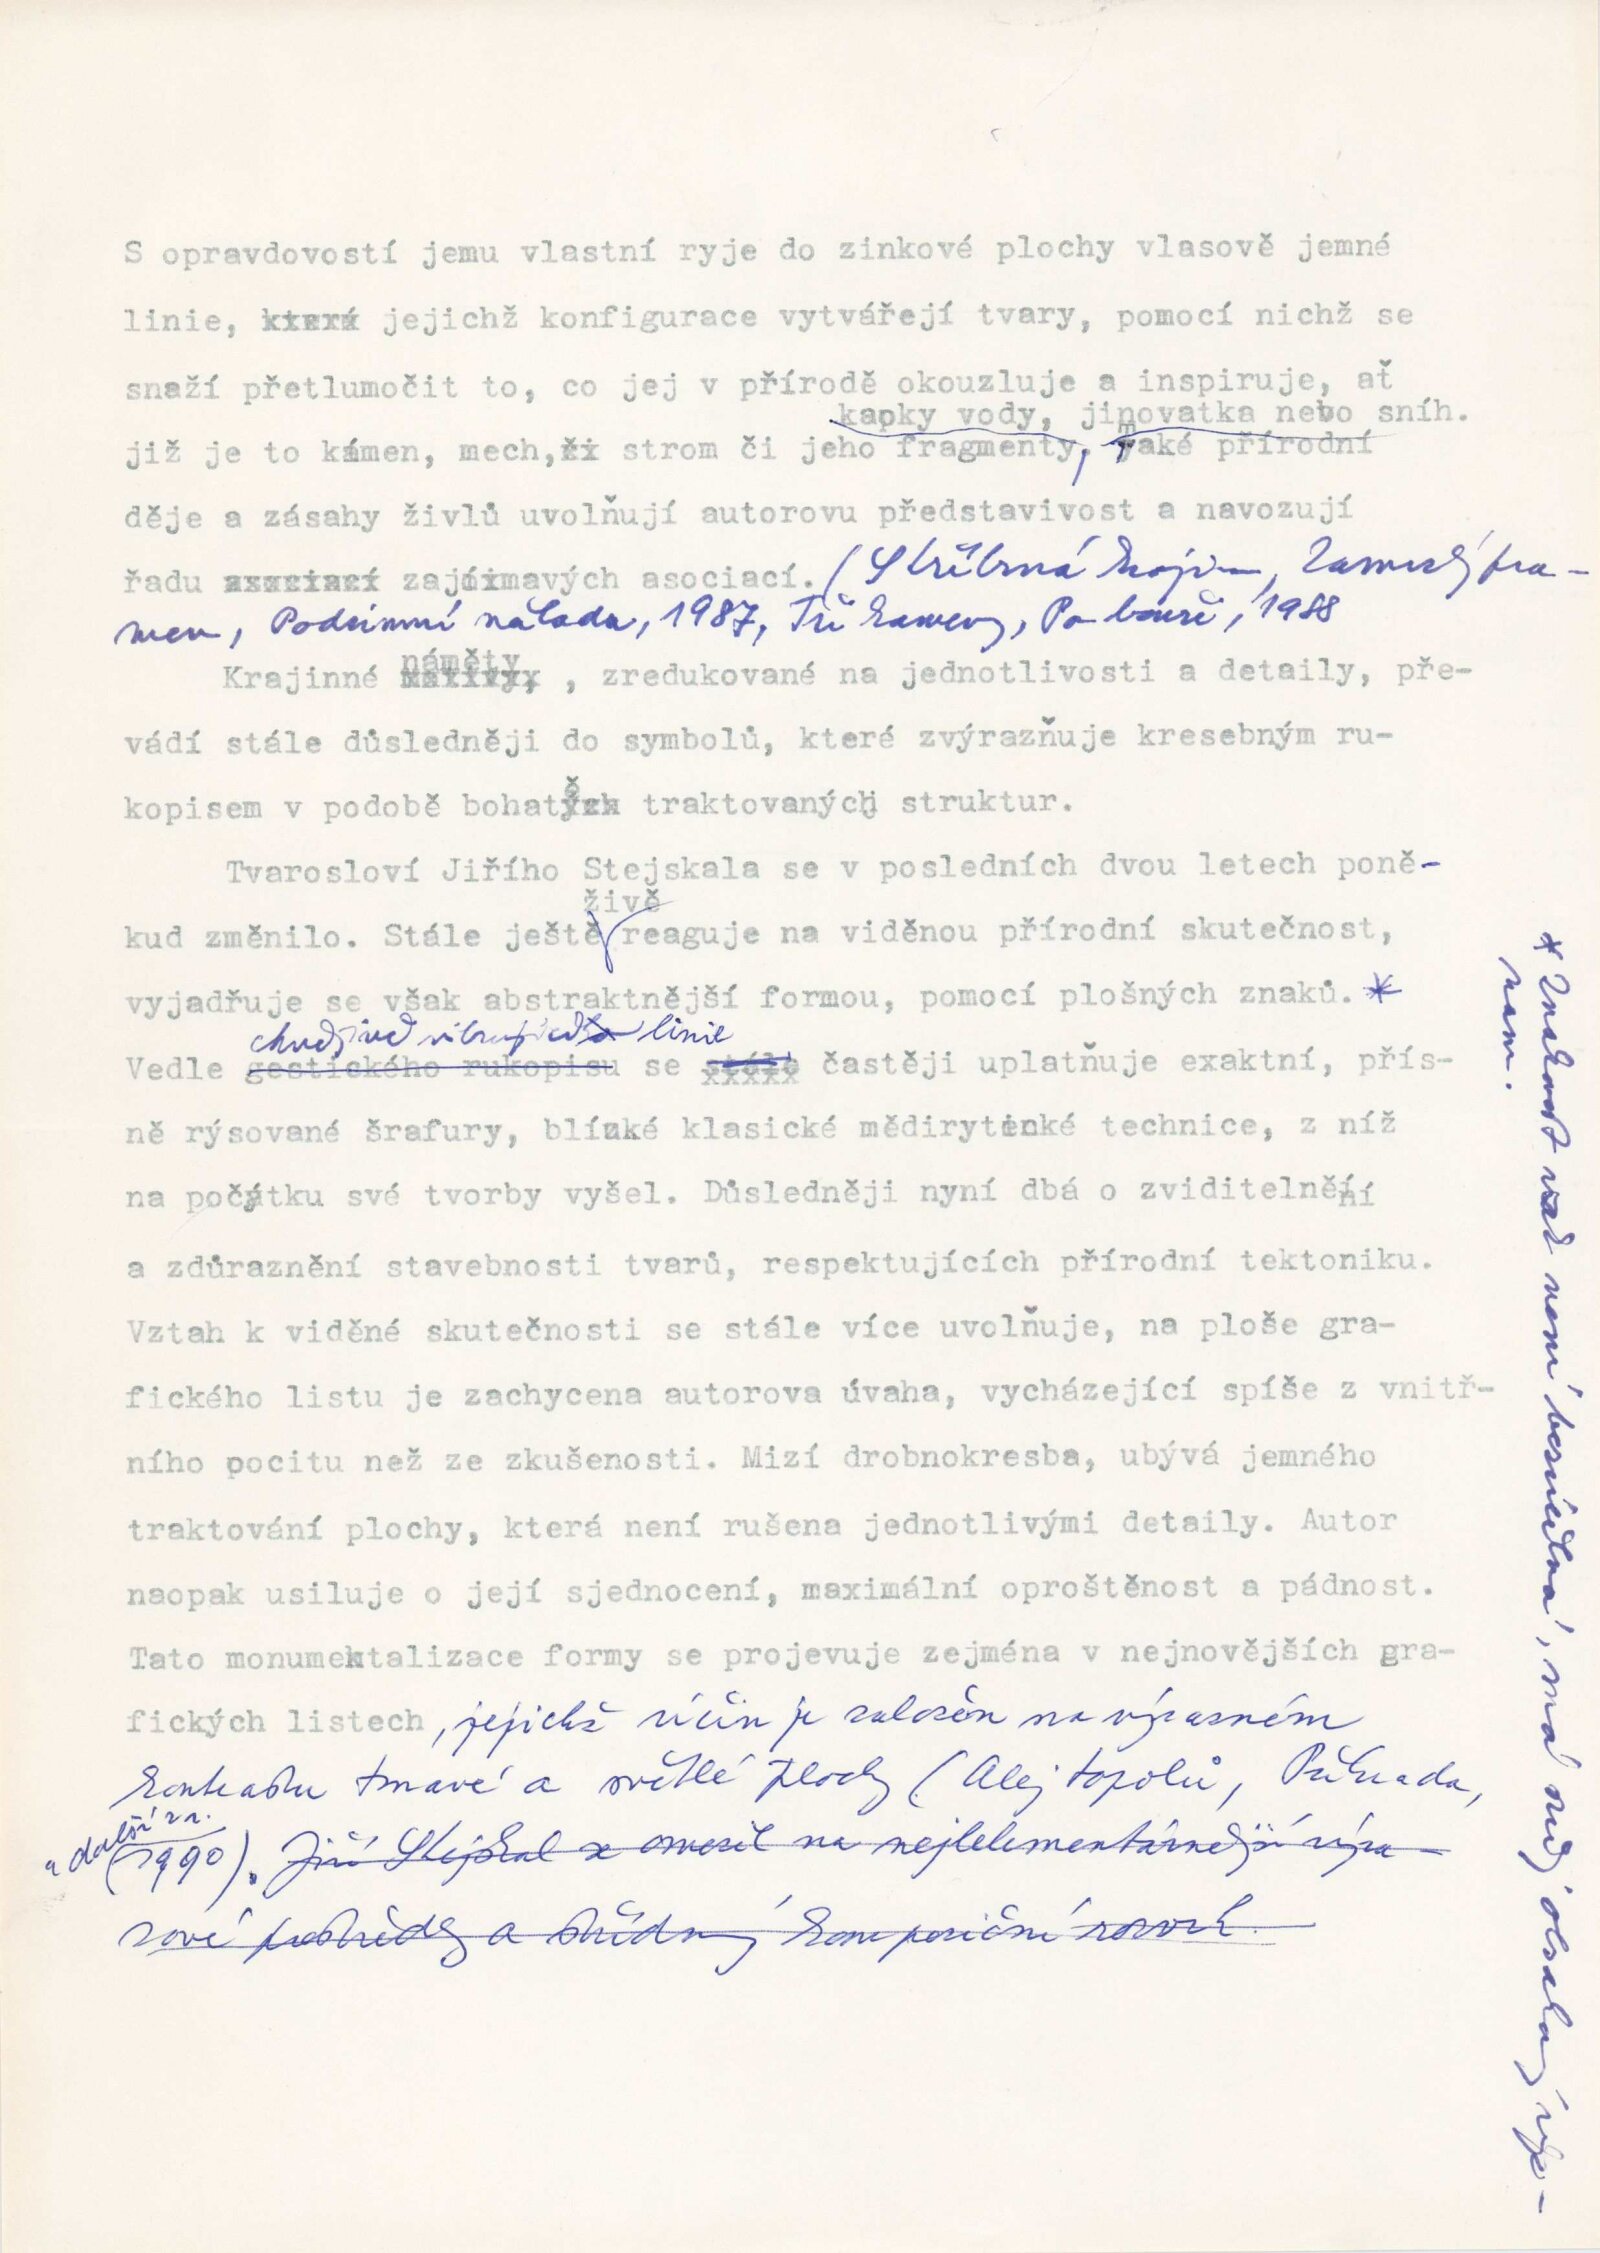 S opravdovostí jemu vlastní ryje do zinkové plochy vlasově jemné
linie, která jejichž konfigurace vytvářejí tvary, pomocí nichž se
snaží přetlumočit to, co jej v přírodě okouzluje a inspiruje, ať
kapky vody, jinovatka nebo sníh.
již je to kámen, mech, či strom či jeho fragmenty, také přírodní
děje a zásahy živlů uvolňují autorovu představivost a navozují
řadu asociací zajímavých asociací. (Stříbrná krajina, Zamrzlý pra-
men, Podzimní nálada, 1987, Tři kameny, Po bouři, 1988
náměty
Krajinné motivy, , zredukované na jednotlivosti a detaily, pře-
vádí stále důsledněji do symbolů, které zvýrazňuje kresebným ru-
kopisem v podobě bohatě traktovaných struktur.
Tvarosloví Jiřího Stejskala se v posledních dvou letech poně-
živě
kud změnilo. Stále ještě reaguje na viděnou přírodní skutečnost,
vyjadřuje se však abstraktnější formou, pomocí plošných znaků. *
linie
Vedle gestického rukopisu se stále častěji uplatňuje exaktní, přís-
ně rýsované šrafury, blízké klasické mědirytinké technice, z níž
na počátku své tvorby vyšel. Důsledněji nyní dbá o zviditelnění
a zdůraznění stavebnosti tvarů, respektujících přírodní tektoniku.
Vztah k viděné skutečnosti se stále více uvolňuje, na ploše gra-
fického listu je zachycena autorova úvaha, vycházející spíše z vnitř-
ního pocitu než ze zkušenosti. Mizí drobnokresba, ubývá jemného
traktování plochy, která není rušena jednotlivými detaily. Autor
naopak usiluje o její sjednocení, maximální oproštěnost a pádnost.
Tato monumentalizace formy se projevuje zejména v nejnovějších gra-
fických listech, jejichž účin je založen na výrazném
kontrastu tmavé a světlé plochy (Alej topolů, Přehrada,
a další z r.
(1990). Jiří Stejskal se omezil na nejelementárnější výra-
zové prostředky a střídmý kompoziční rozvrh.
* Znakovost však není bezúčelná, má svůj obsahový výz-
nam.